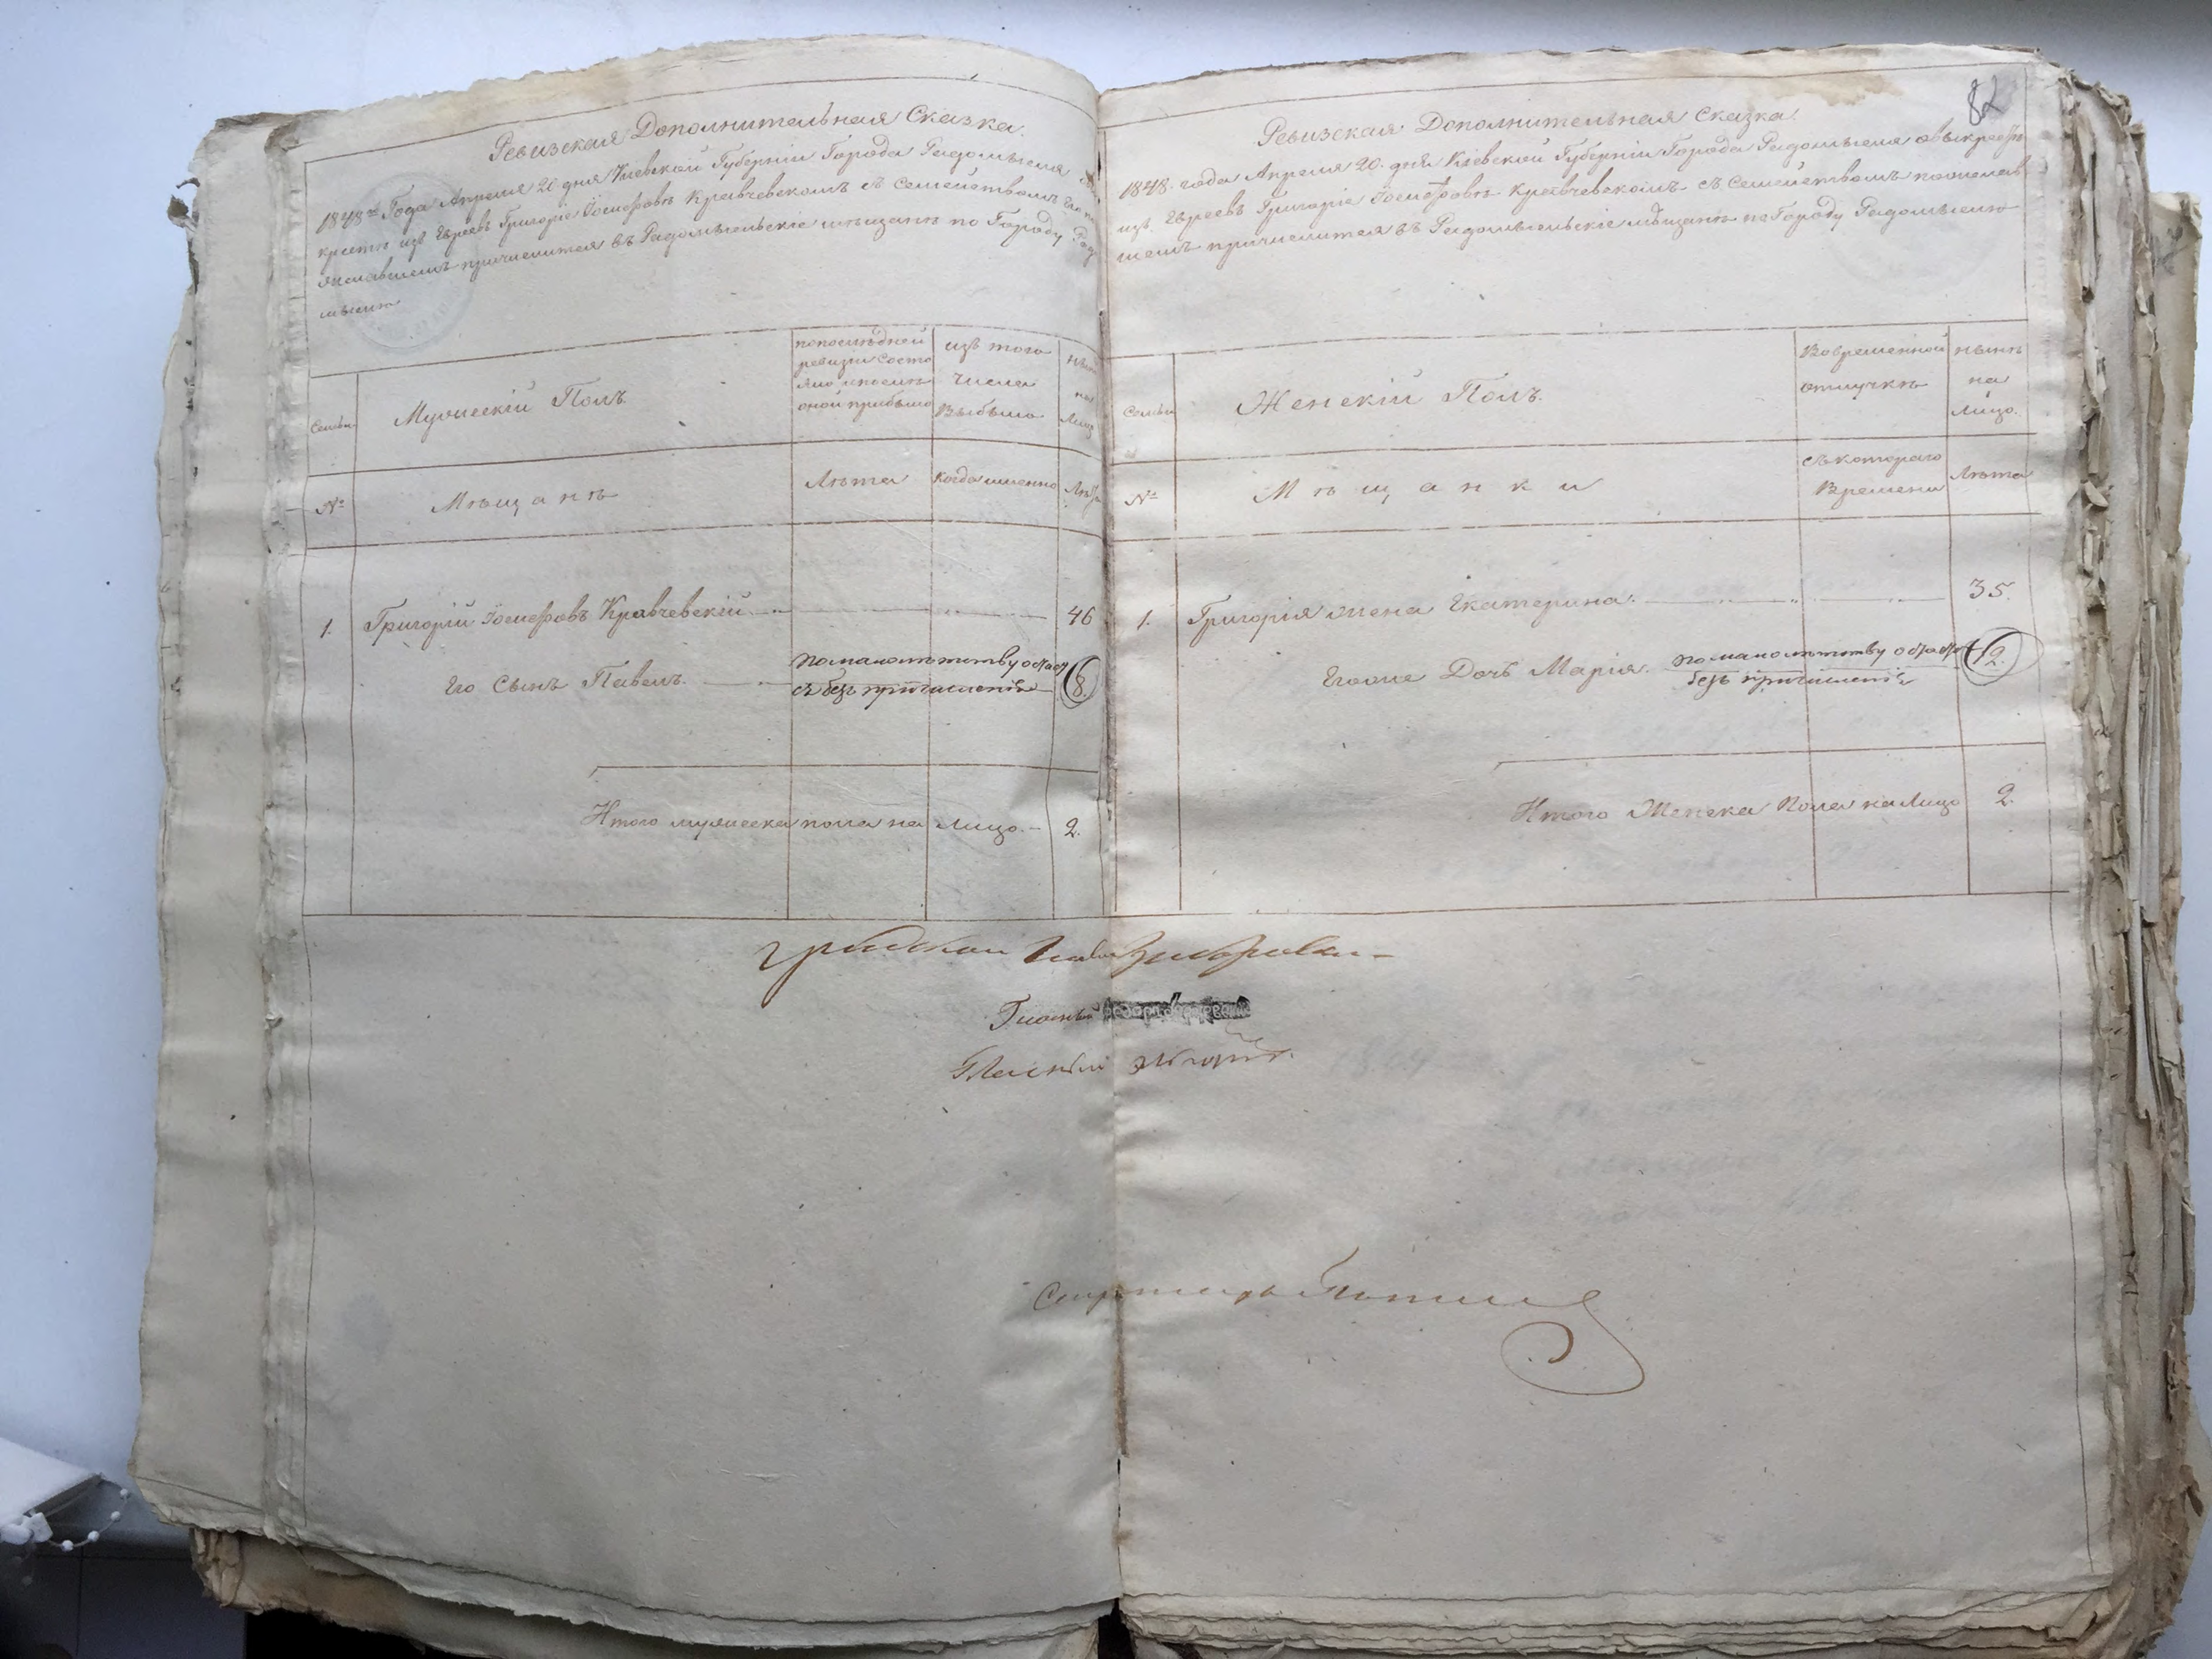 Ревизская Дополнительная Сказка.
1848го Года Апреля 20 дня Киевской Губерніи Города Радомысля
кресте изъ Евреевъ Григоріе Іосифовѣ Кравчевскомъ съ Семействомъ Его
желавшемъ причислится въ Радомысльскіе мѣщане по Городу Радо
мыслю
Семьи
Мужескій Полъ
попослѣдней
ревизіи состо
яло и послѣ
оной прибыло
изъ того
числа
Выбыло
нынѣ
на
Лицо
№
Мѣщане
Лѣта
Когда именно
Лѣта
1. Григорій Іосифовъ Кравчевскій 46
Его Сынъ Павелъ по малолѣтству
безъ причисленія 8.
Итого мужеска пола на лицо 2.
82
Ревизская Дополнительная Сказка.
1848. года Апреля 20. дня Кіевской Губерніи Города Радомысля овыкрестѣ
изъ Евреевъ Григоріе Іосифовѣ Кравчевскомъ съ Семействомъ пожелав
шемъ причислится въ Радомысльскіе мѣщане по Городу Радомыслю
Семьи
Женскій Полъ.
Вовременной
отлучкѣ
нынѣ
на
лицо.
№
Мѣщанки
съкотораго
Времени
Лѣта
1. Григорія жена Екатерина. 35.
Егоже Дочь Марія. по малолѣтству 12.
безъ причисленія
Итого Женска Пола на Лицо 2.
Гласный
Гласный